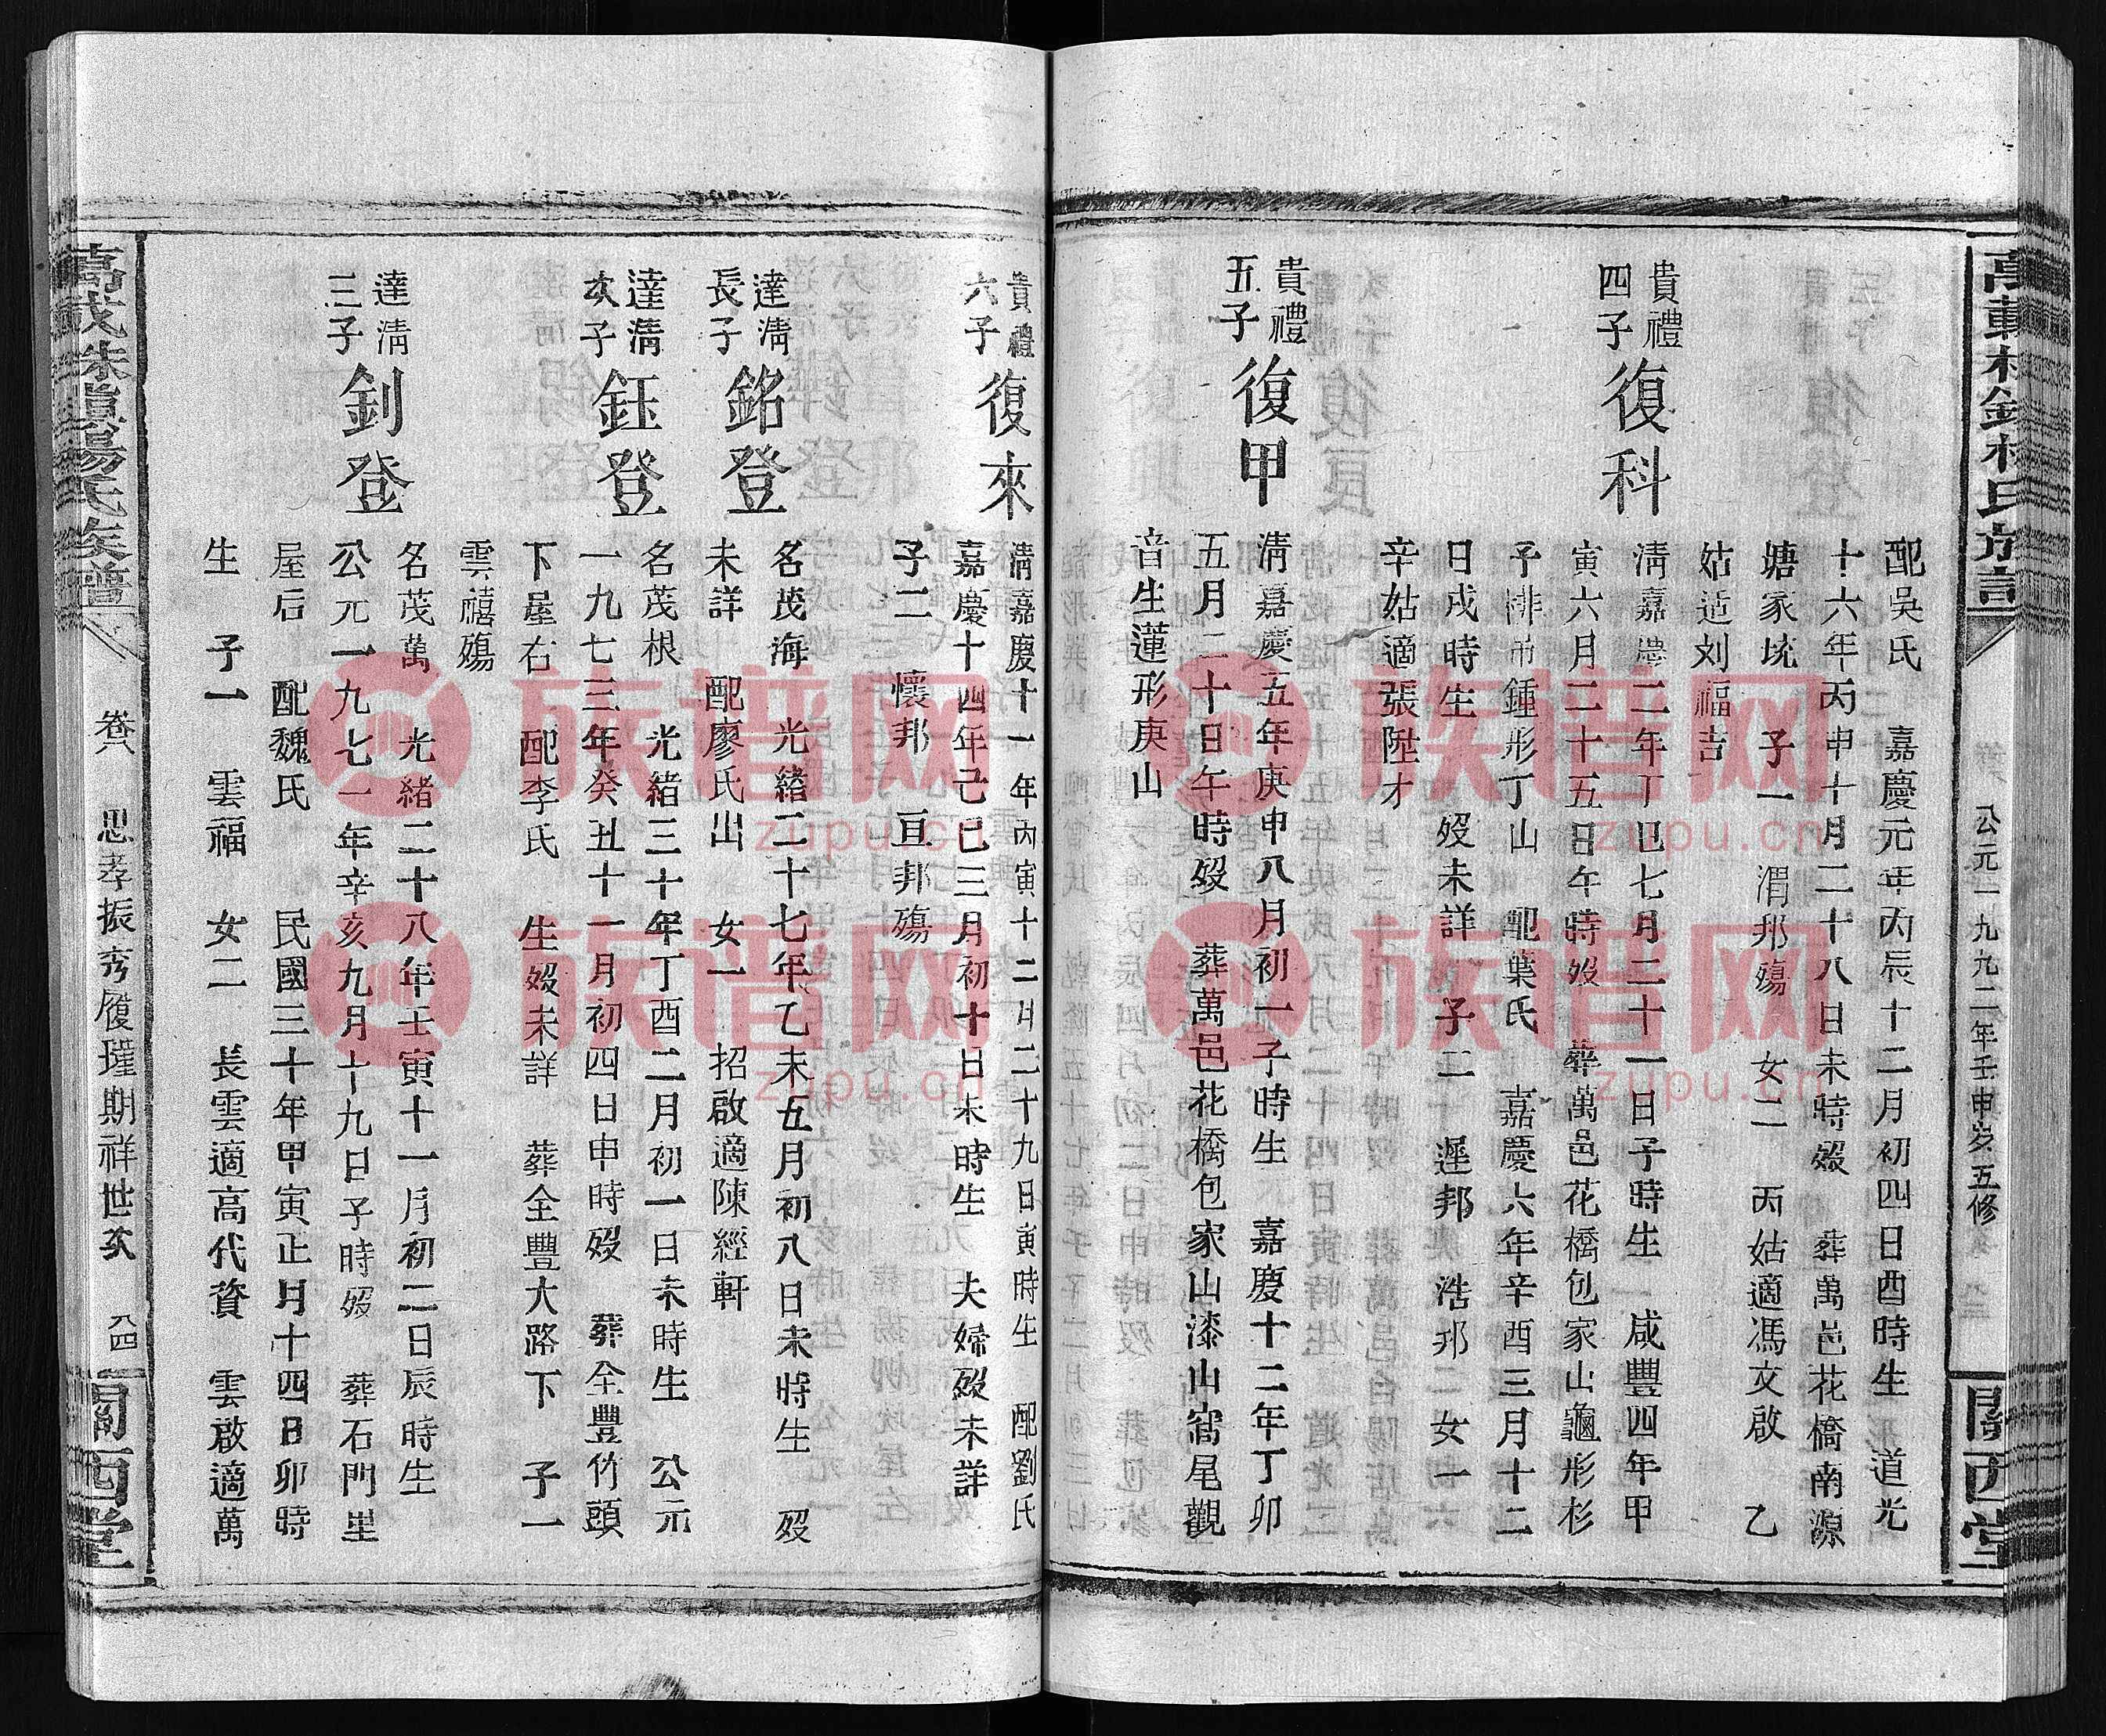 公元一九九二年壬申岁五修
關西堂
配吳氏 嘉慶元年丙辰十二月初四日酉時生 道光
十六年丙申十月二十八日未時歿 葬萬邑花橋南源
塘冢坑 子一 渭邦殤 女二 丙姑適馮文啟 乙
姑适刘福吉
貴禮
四子
復科
淸嘉慶二年丁巳七月二十一日子時生 咸豐四年甲
寅六月二十五日午時歿 葬萬邑花橋包家山龜形杉
予排吊鍾形丁山 配葉氏 嘉慶六年辛酉三月十二
日戌時生 歿未詳 子二 遲邦 浩邦 女一
辛姑適張陞才
貴禮
五子
復甲
淸嘉慶五年庚申八月初一子時生 嘉慶十二年丁卯
五月二十日午時歿 葬萬邑花橋包家山漆山窩尾觀
音生蓮形庚山
貴禮
六子
復來
淸嘉慶十一年丙寅十二月二十九日寅時生 配劉氏
嘉慶十四年己巳三月初十日未時生 夫婦歿未詳
子二 懷邦 亘邦殤
達淸
長子
銘登
名茂海 光緒二十七年乙未五月初八日未時生 歿
未詳 配廖氏出 女一 招啟適陳經軒
達淸
次子
鈺登
名茂根 光緒三十年丁酉二月初一日未時生 公元
一九七三年癸丑十一月初四日申時歿 葬全豐竹頭
下屋右 配李氏 生歿未詳 葬全豐大路下 子一
雲禧殤
達淸
三子
釗登
名茂萬 光緒二十八年壬寅十一月初二日辰時生
公元一九七一年辛亥九月十九日子時歿 葬石門里
屋后 配魏氏 民國三十年甲寅正月十四日卯時
生 子一 雲福 女二 長雲適高代資 雲啟適萬
卷八 思孝振秀履瑾期祥世次 八四
關西堂
族谱网
zupu.cn
族谱网
zupu.cn
族谱网
zupu.cn
族谱网
zupu.cn